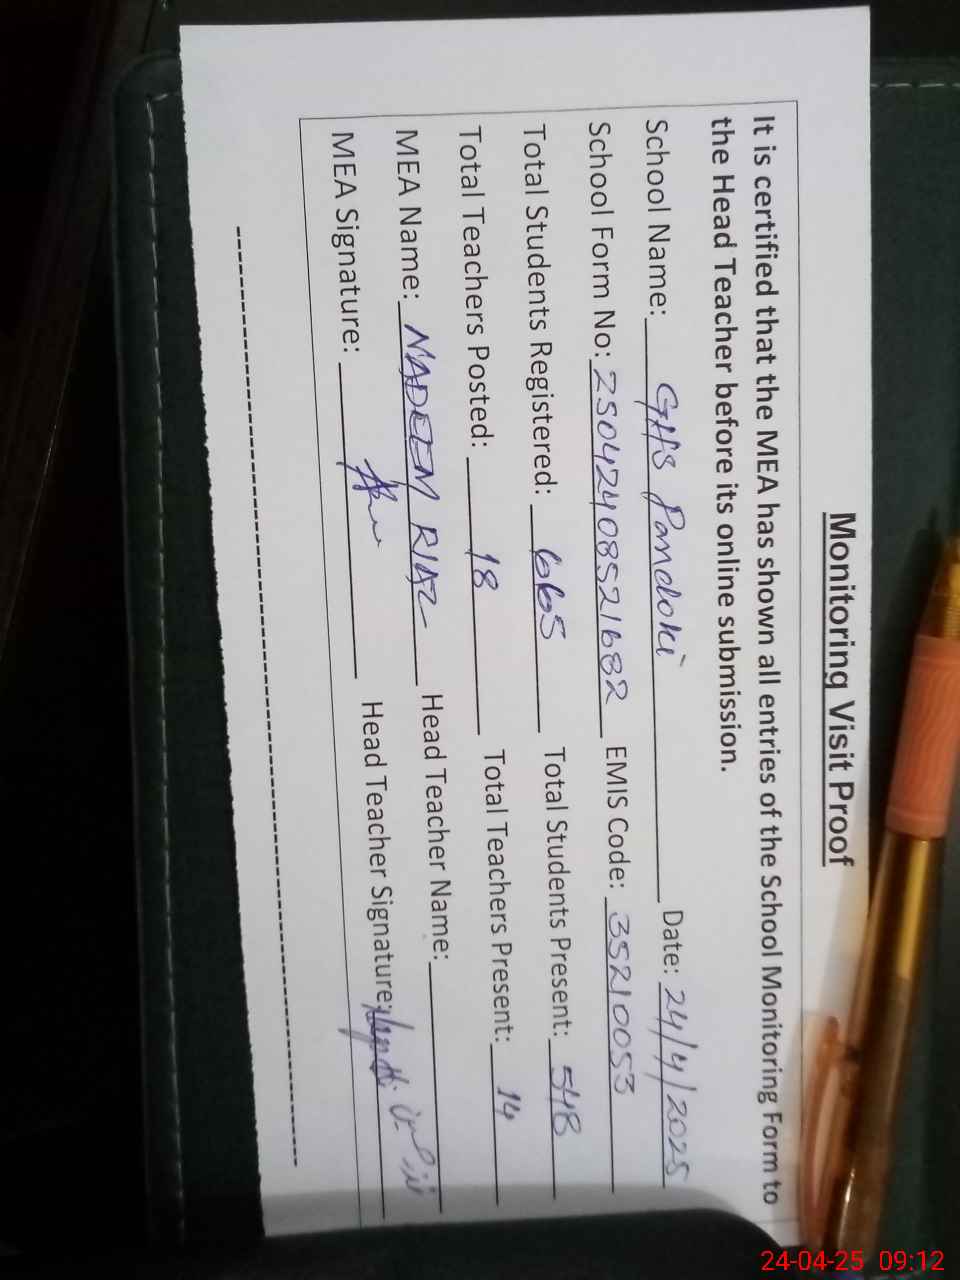 Monitoring Visit Proof
It is certified that the MEA has shown all entries of the School Monitoring Form to
the Head Teacher before its online submission.
School Name: GHS Pandoki Date: 24/4/2025
School Form No: 25042408521682 EMIS Code: 35210053
Total Students Registered: 665 Total Students Present: 548
Total Teachers Posted: 18 Total Teachers Present: 14
MEA Name: NADEEM RIAZ Head Teacher Name:
MEA Signature: Head Teacher Signature:
24-04-25 09:12